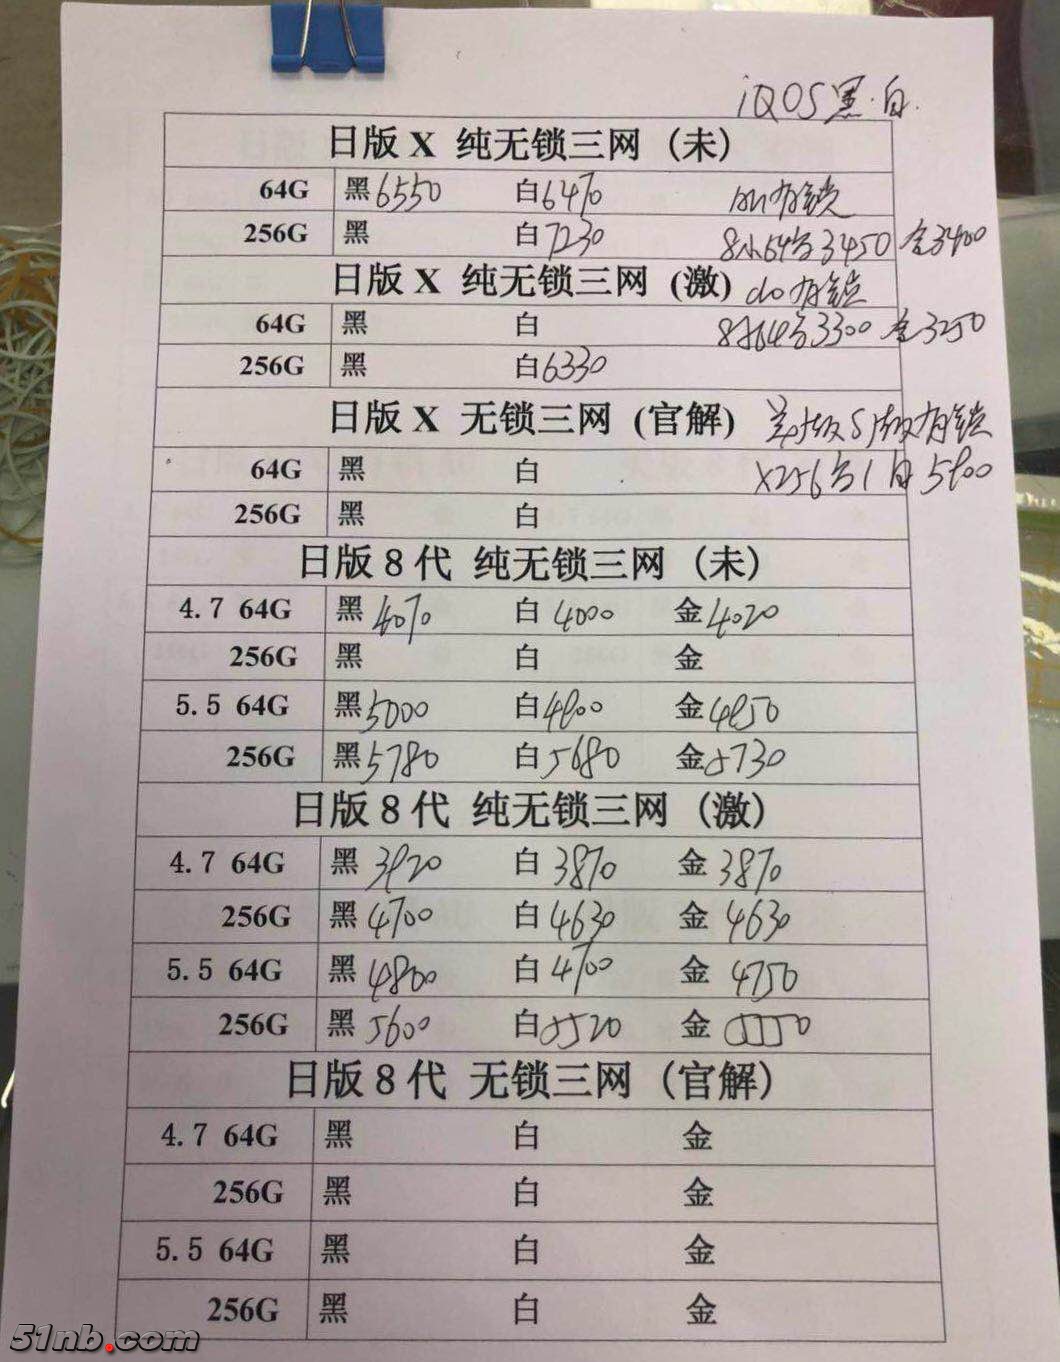 iQOS黑.白.
日版 X 纯无锁三网（未）
64G 黑6550 白6470 au有锁
256G 黑 白7230 8小64G 3450 金3400
日版 X 纯无锁三网（激） do有锁
64G 黑 白 3300 金3250
256G 黑 白6330
日版 X 无锁三网（官解） 有锁
64G 黑 白 X256G 1白5900
256G 黑 白
日版 8 代 纯无锁三网（未）
4.7 64G 黑4070 白4000 金4020
256G 黑 白 金
5.5 64G 黑5000 白4800 金4850
256G 黑5780 白5680 金5730
日版 8 代 纯无锁三网（激）
4.7 64G 黑3920 白3870 金3870
256G 黑4700 白4630 金4630
5.5 64G 黑4800 白4700 金4750
256G 黑5600 白5520 金5550
日版 8 代 无锁三网（官解）
4.7 64G 黑 白 金
256G 黑 白 金
5.5 64G 黑 白 金
256G 黑 白 金
51nb.com